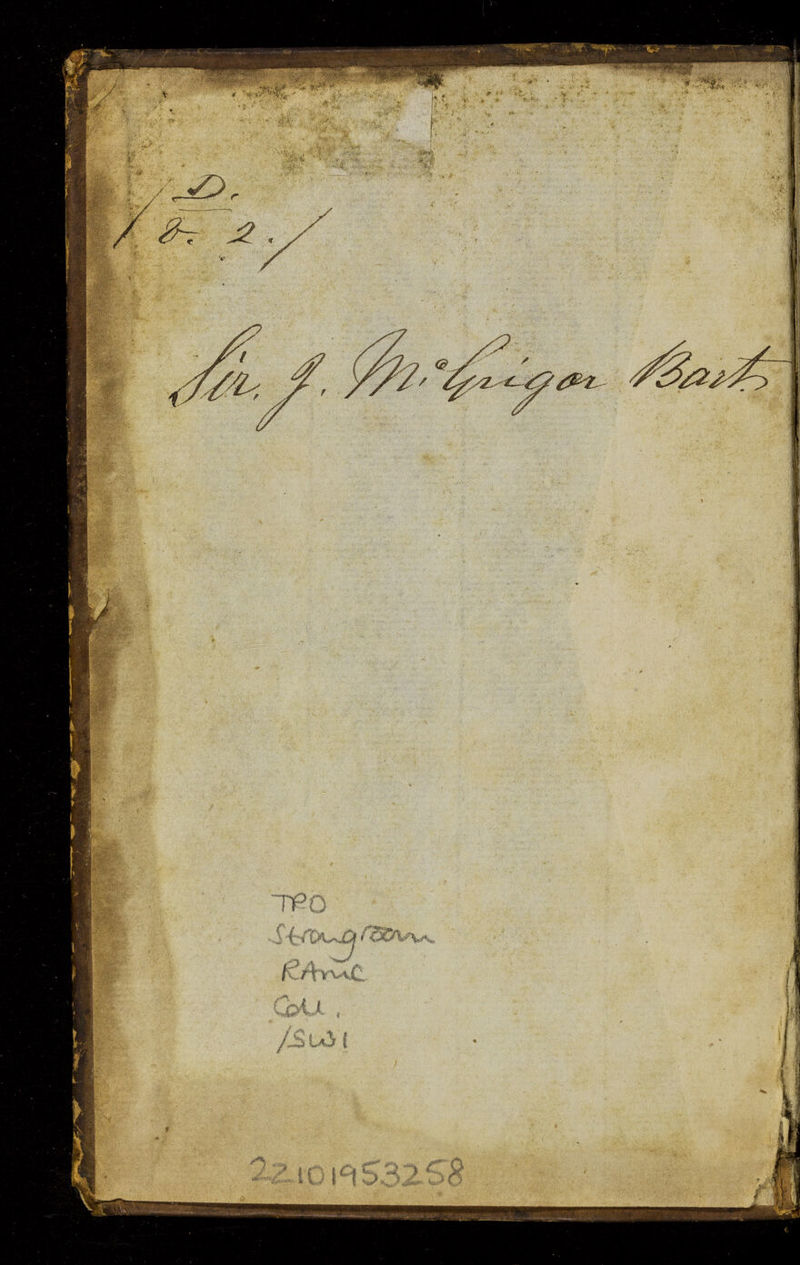 / D.
8. 2. /
Sir. J. McGrigor Bart.
TPO
Strongroom
RAMC
Coll.
/SW1
22101953258